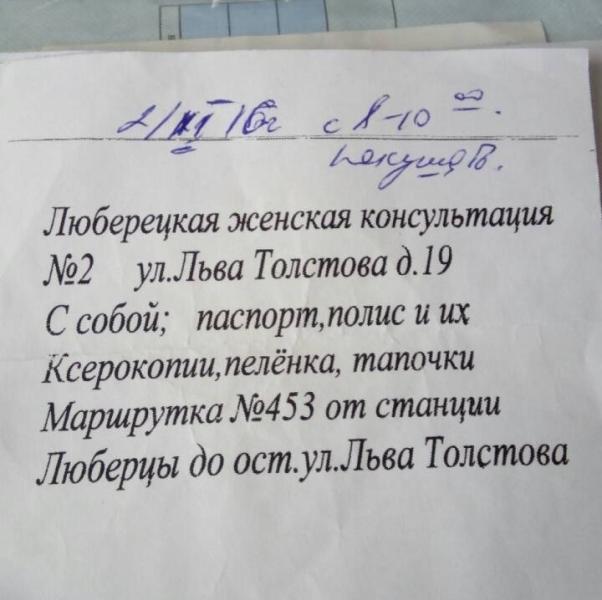 2/XI 16г с 8-10 00.
Люберецкая женская консультация
№2 ул.Льва Толстова д.19
С собой; паспорт,полис и их
Ксерокопии,пелёнка, тапочки
Маршрутка №453 от станции
Люберцы до ост.ул.Льва Толстова